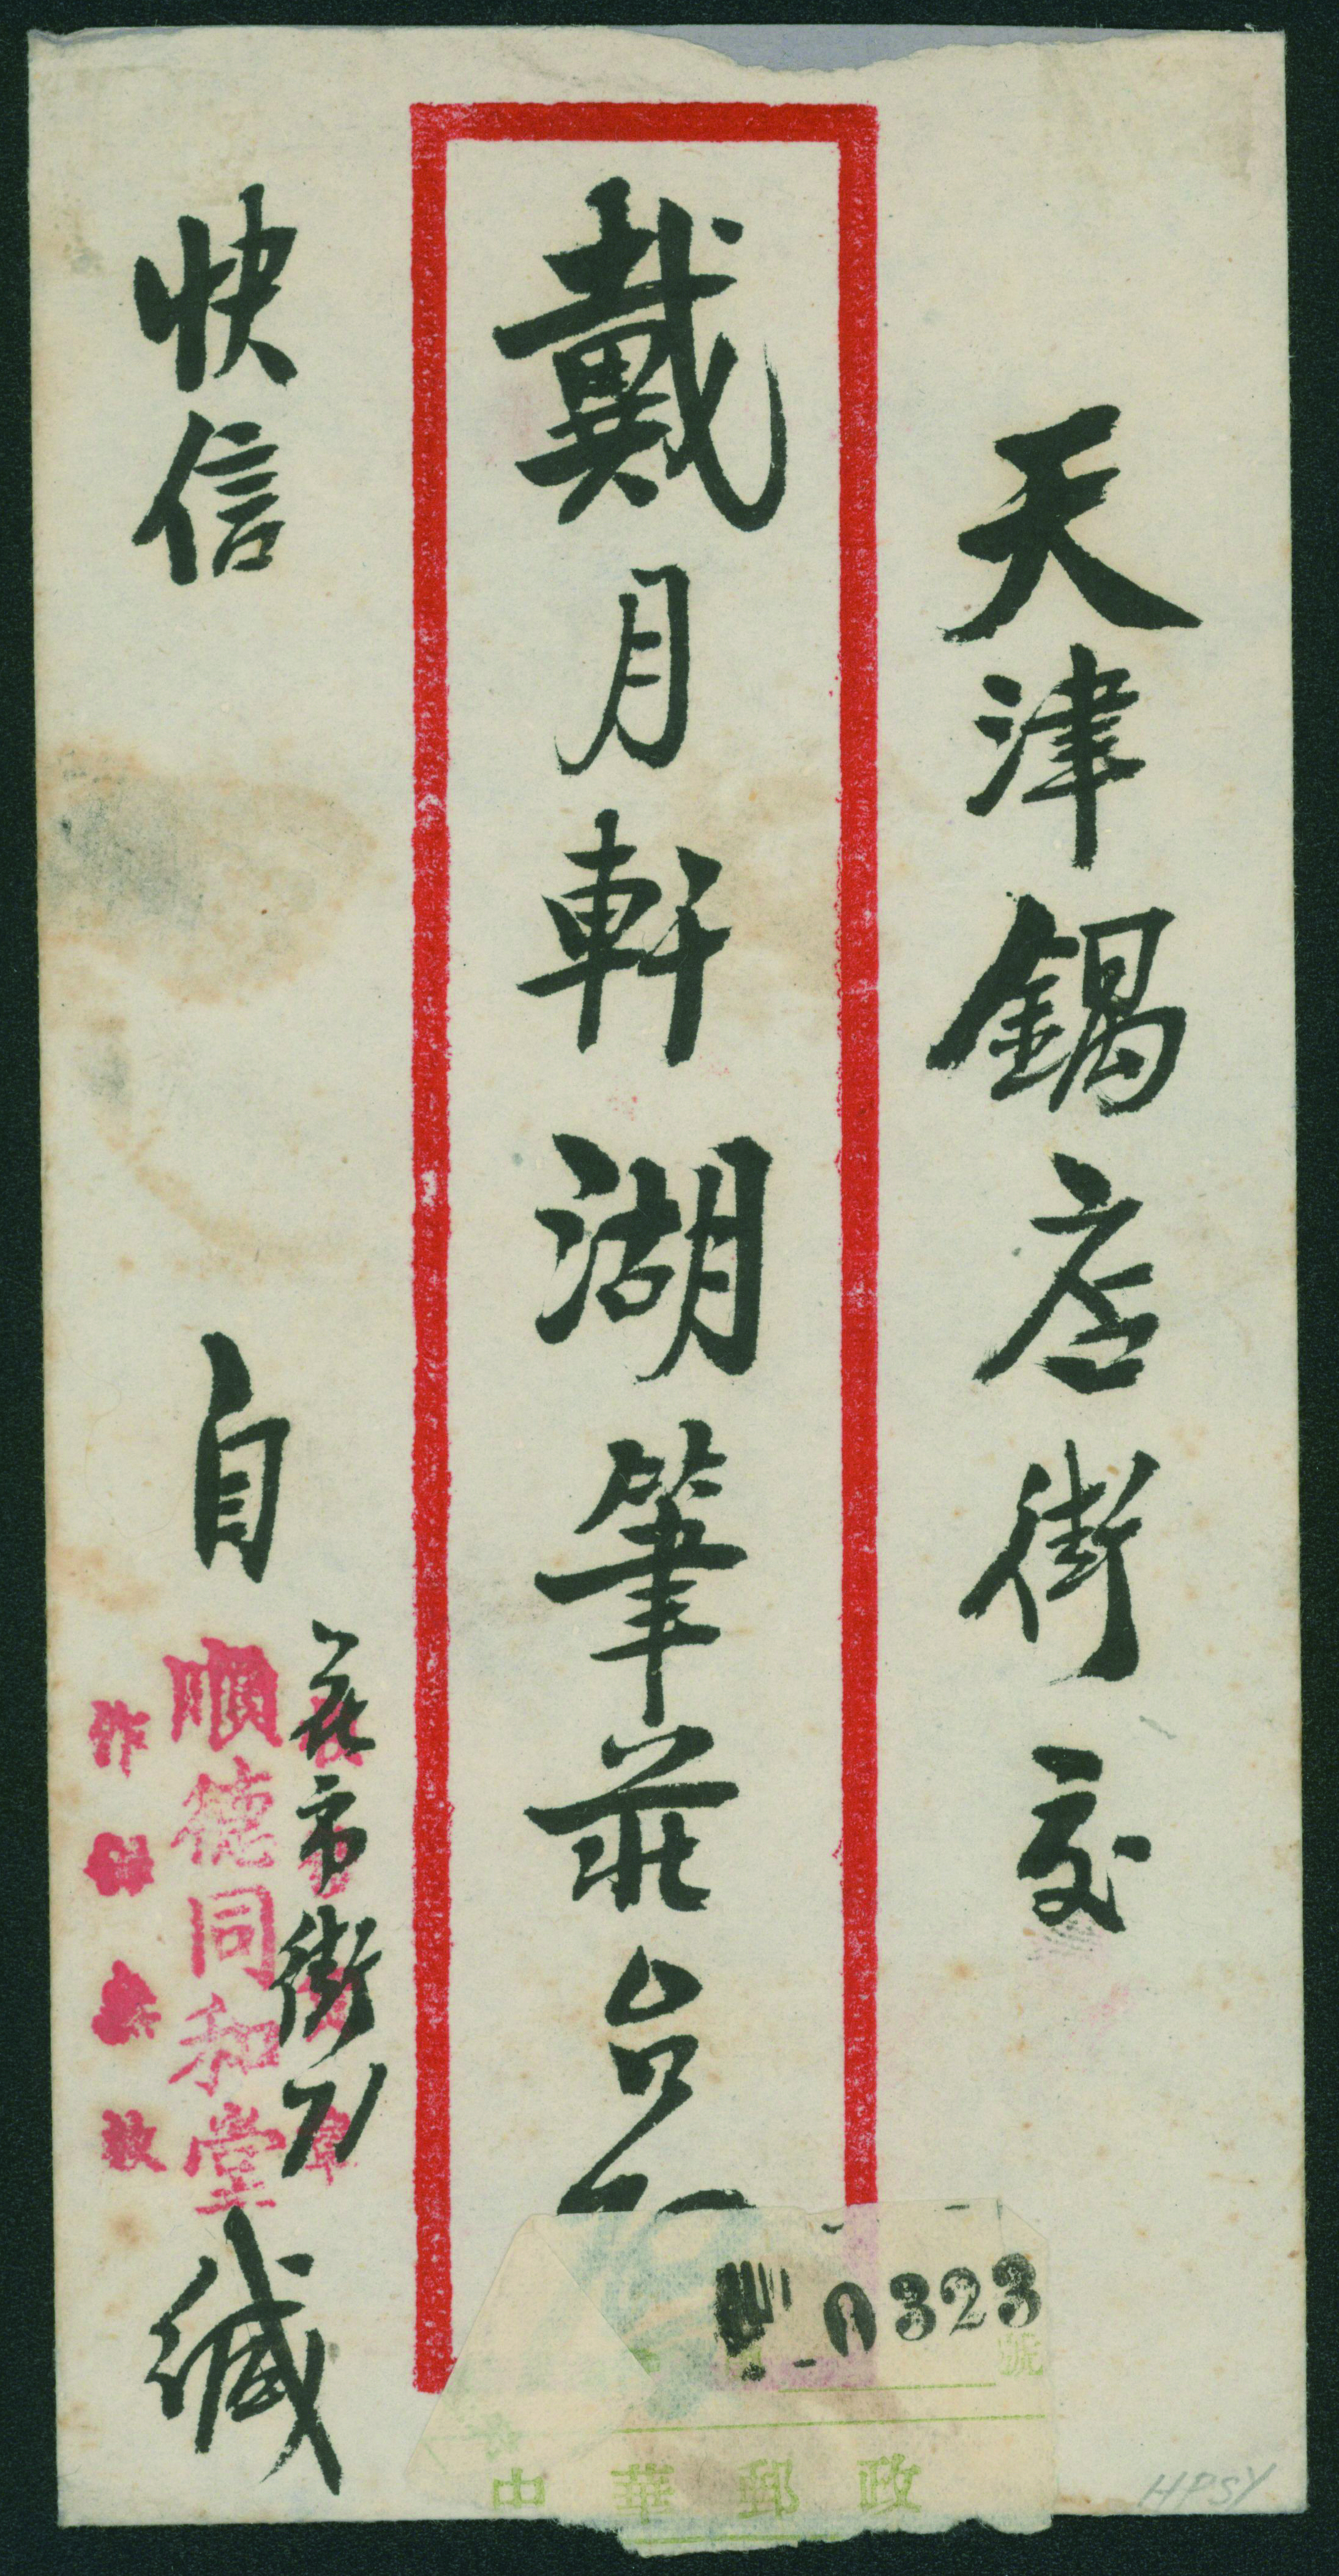 天津鍋店街交
戴月軒湖筆莊台
快信
自
花市街71
順德同和堂
作
緘
0323
號
中華郵政
HPSY